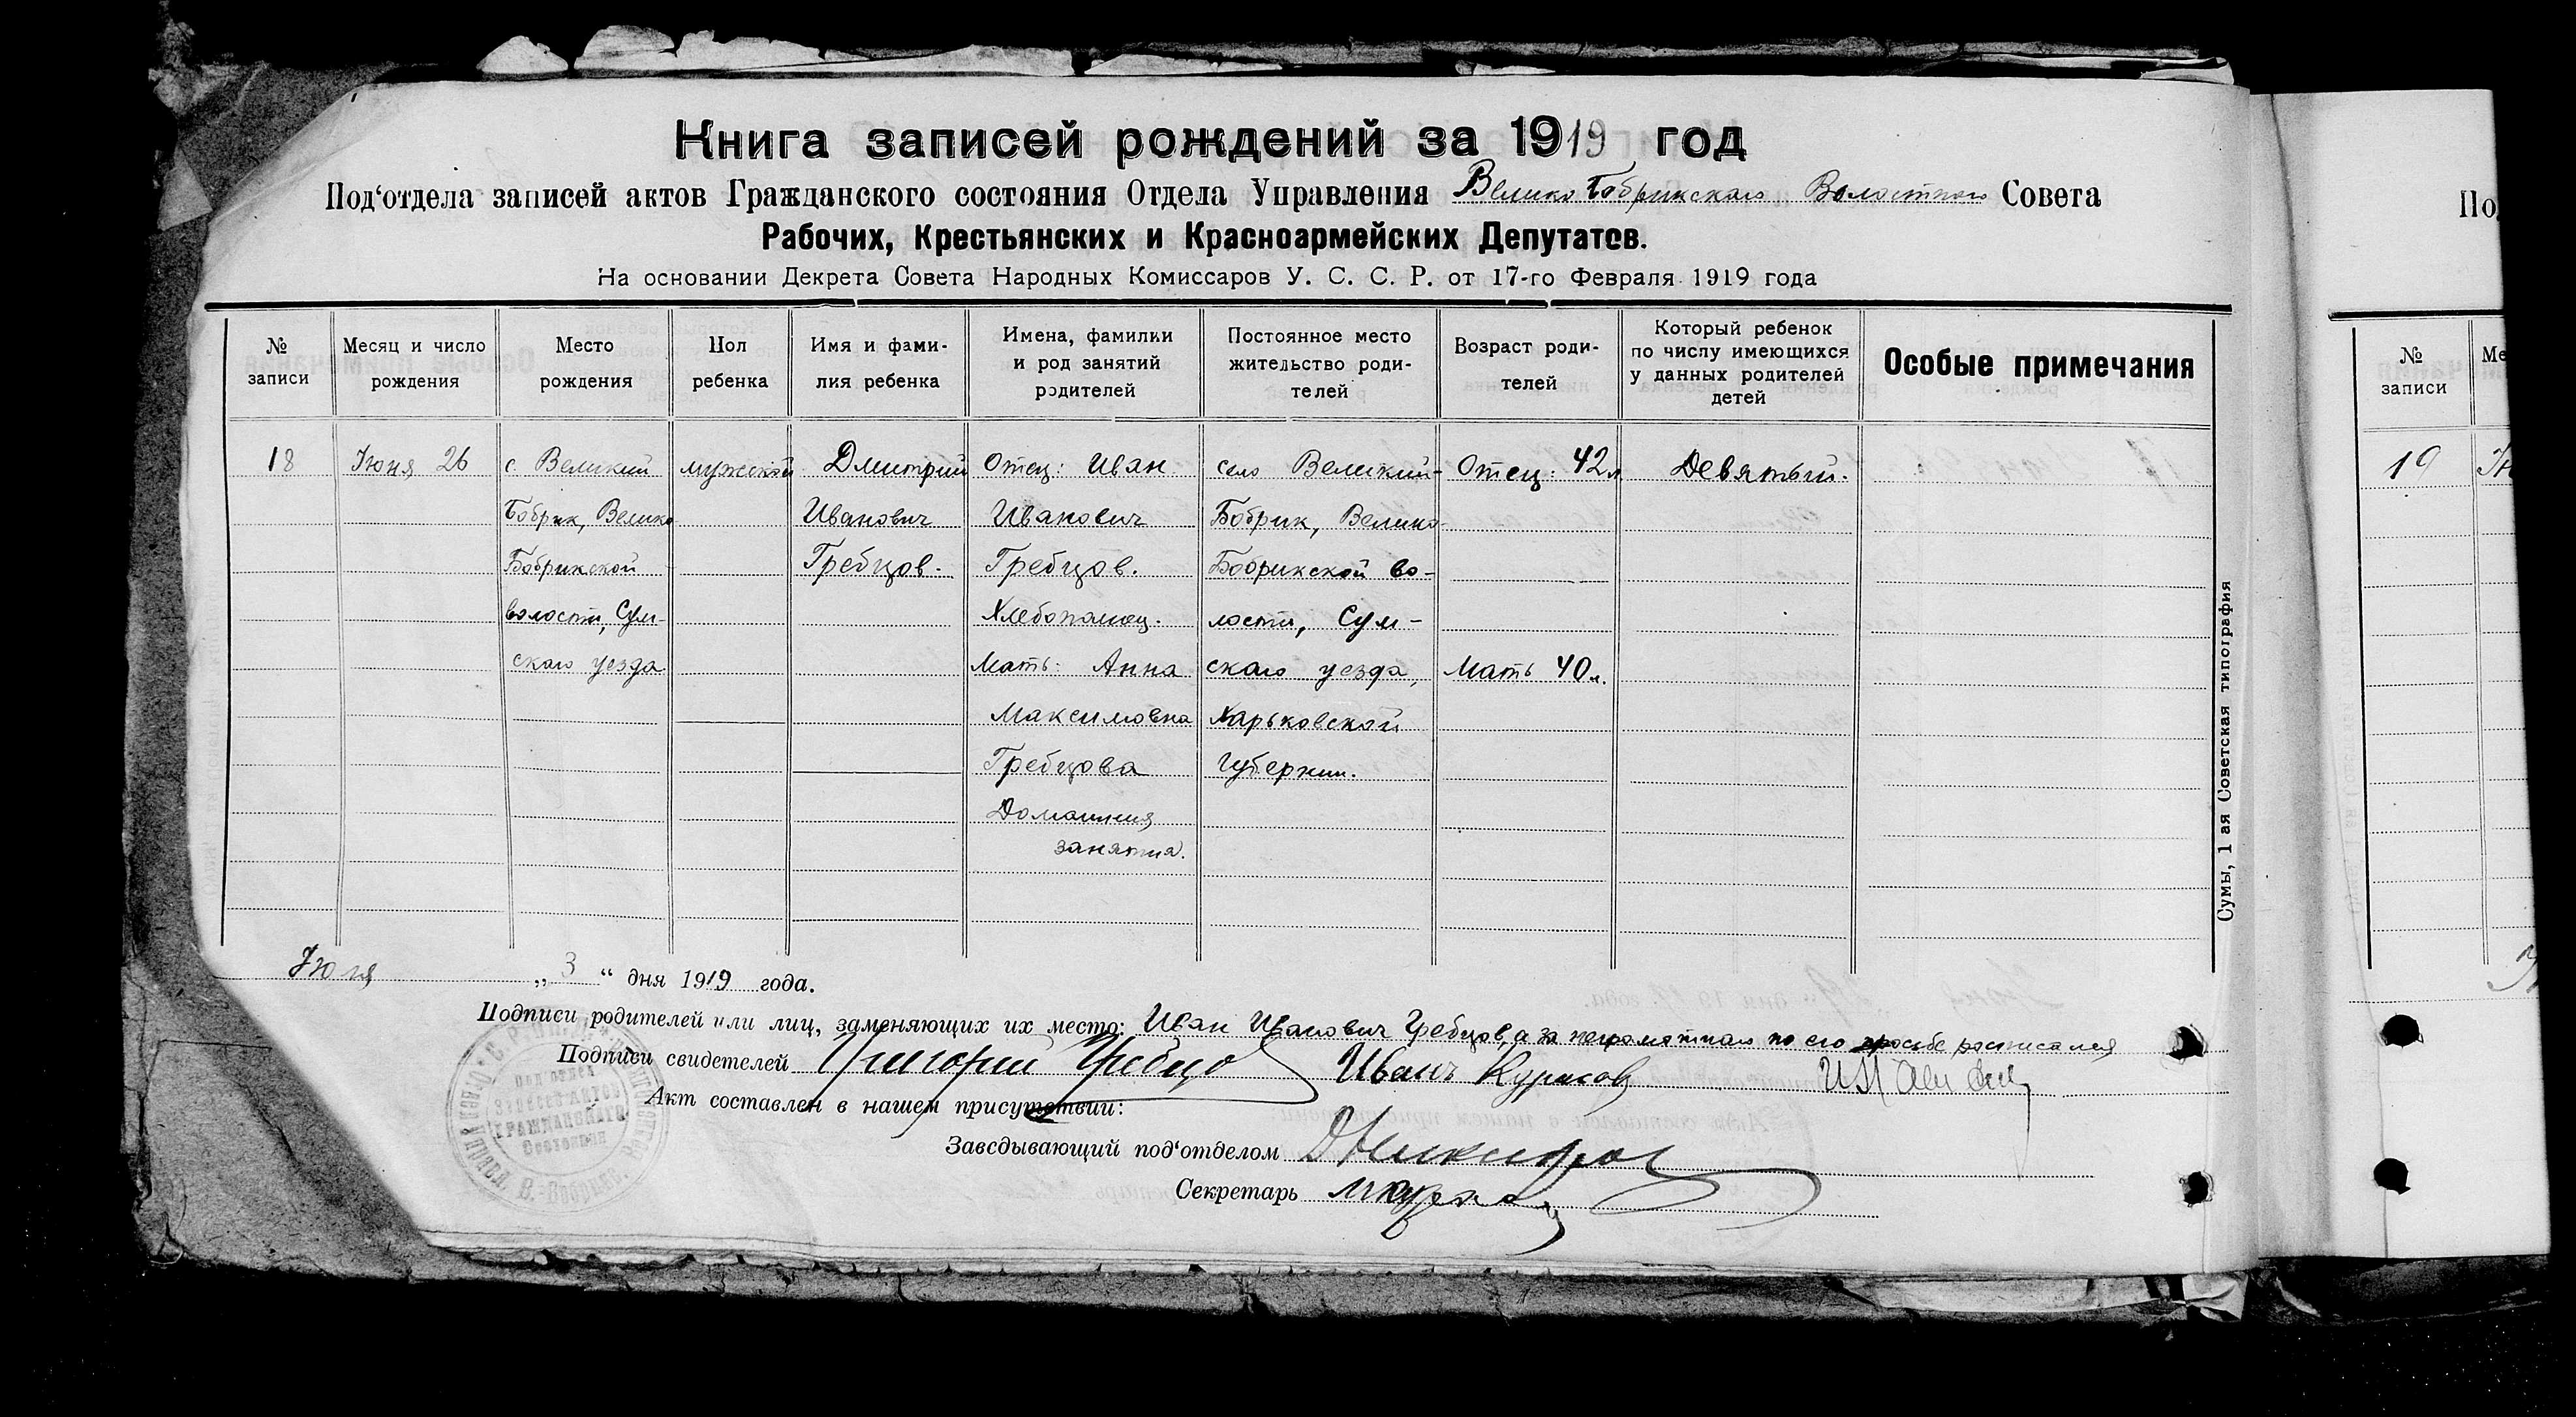 Книга записей рождений за 1919 год
Под'отдела записей актов Гражданского состояния Отдела Управления Велико Бобрикского Волостного Совета
Рабочих, Крестьянских и Красноармейских Депутатов.
На основании Декрета Совета Народных Комиссаров У. С. С. Р. от 17-го Февраля 1919 года
№
записи
Месяц и число
рождения
Место
рождения
Пол
ребенка
Имя и фами-
лия ребенка
Имена, фамилки
и род занятий
родителей
Постоянное место
жительство роди-
телей
Возраст роди-
телей
Который ребенок
по числу имеющихся
у данных родителей
детей
Особые примечания
18
Июня 26
с. Великий
Бобрик, Велико
Бобрикской
волости, Сум-
скаго уезда
мужской
Дмитрий
Иванович
Гребцов.
Отец: Иван
Иванович
Гребцов.
Хлебопашец.
Мать: Анна
Максимовна
Гребцова
Домашния
занятия.
село Великий-
Бобрик, Велико-
Бобрикской во-
лости, Сум-
скаго уезда,
Харьковской
губернии.
Отец: 42 л
Мать 40 л.
Девятый.
Июля „ 3 “ дня 1919 года.
Подписи родителей или лиц, заменяющих их место: Иван Иванович Гребцов, а за неграмотного по его просьбе расписался
Подписи свидетелей Григорий Гребцо Иванъ Курасов
Акт составлен в нашем присутствии:
Заведывающий под'отделом
Секретарь
Под'отдел
Записей Актов
Гражданского
Состояния
Сумы, 1 ая Советская типография
По
№
записи
Ме
19